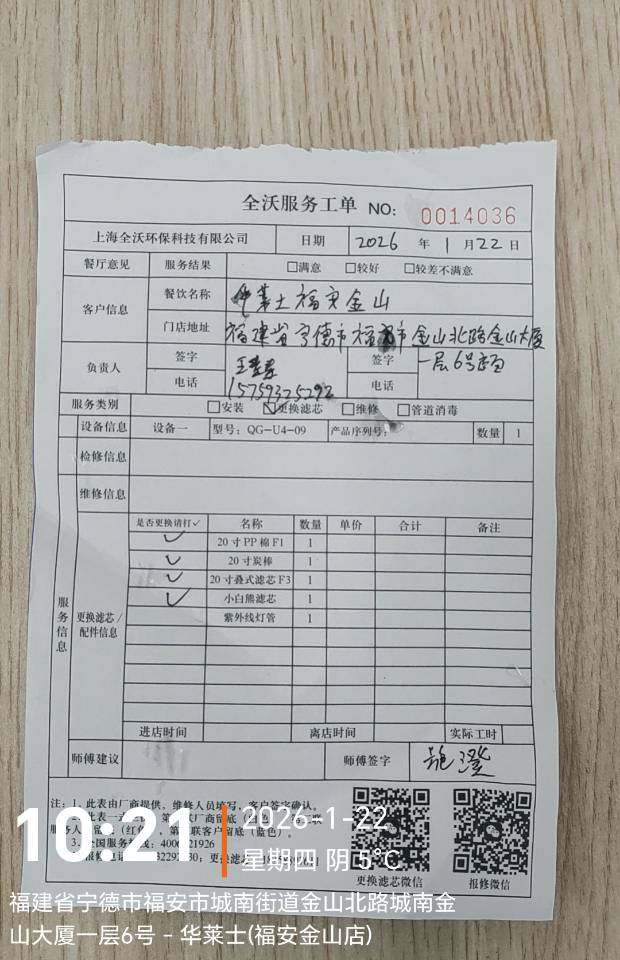 全沃服务工单 NO: 0014036
上海全沃环保科技有限公司 日期 2026 年 1 月 22 日
餐厅意见 服务结果 □满意 □较好 □较差不满意
客户信息 餐饮名称 华莱士福安金山
门店地址 福建省宁德市福安市金山北路金山大厦
一层6号店面
负责人 签字 签字
电话 15759325292 电话
服务类别 □安装 ☑更换滤芯 □维修 □管道消毒
设备信息 设备一 型号: QG-U4-09 产品序列号: 数量 1
检修信息
维修信息
服务信息 更换滤芯/配件信息
是否更换请打✓ 名称 数量 单价 合计 备注
✓ 20寸PP棉F1 1
✓ 20寸炭棒 1
✓ 20寸叠式滤芯F3 1
✓ 小白熊滤芯 1
紫外线灯管 1
进店时间 离店时间 实际工时
师傅建议 师傅签字
注: 1、此表由厂商提供，维修人员填写，客户签字确认。
更换滤芯微信 报修微信
10:21
2026-1-22
星期四 阴 5℃
福建省宁德市福安市城南街道金山北路城南金
山大厦一层6号 - 华莱士(福安金山店)